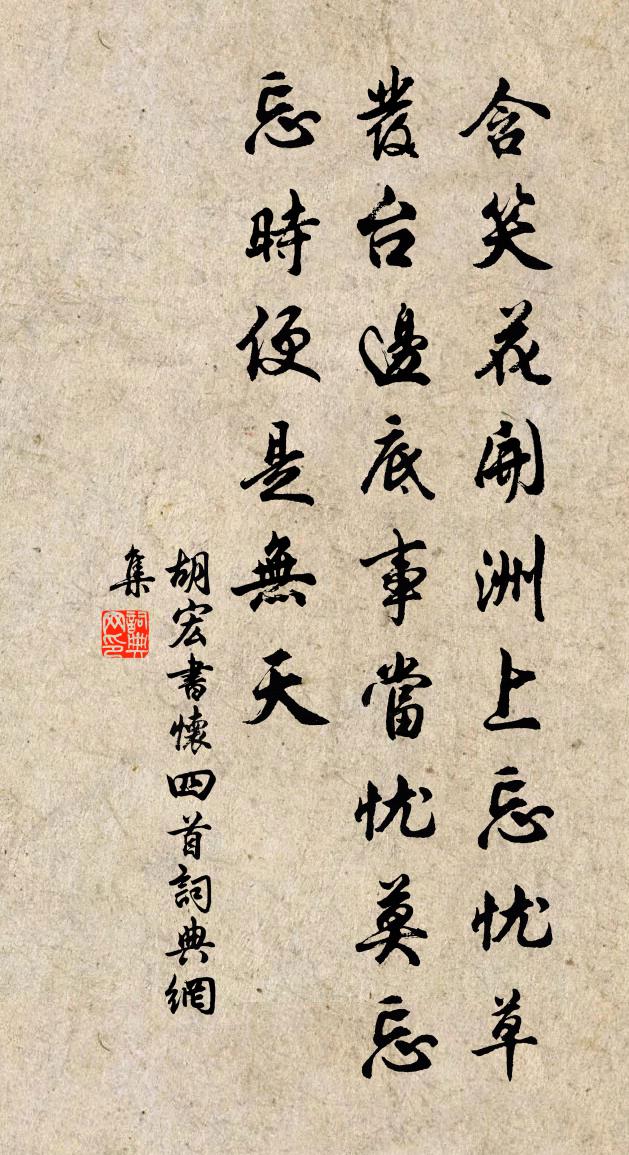 含笑花開洲上忘忧草
發台邊底事當忧莫忘
忘時便是無天
胡宏書懷四首詞典網
集
詞典
网印